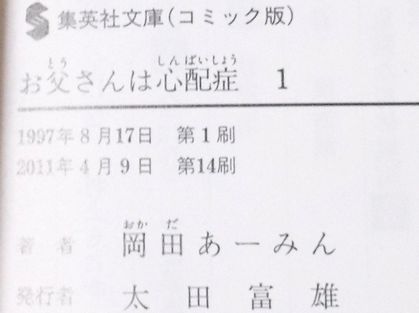 集英社文庫(コミック版)
お父さんは心配症 1
1997年8月17日 第1刷
2011年4月9日 第14刷
著者 岡田あーみん
発行者 太田富雄